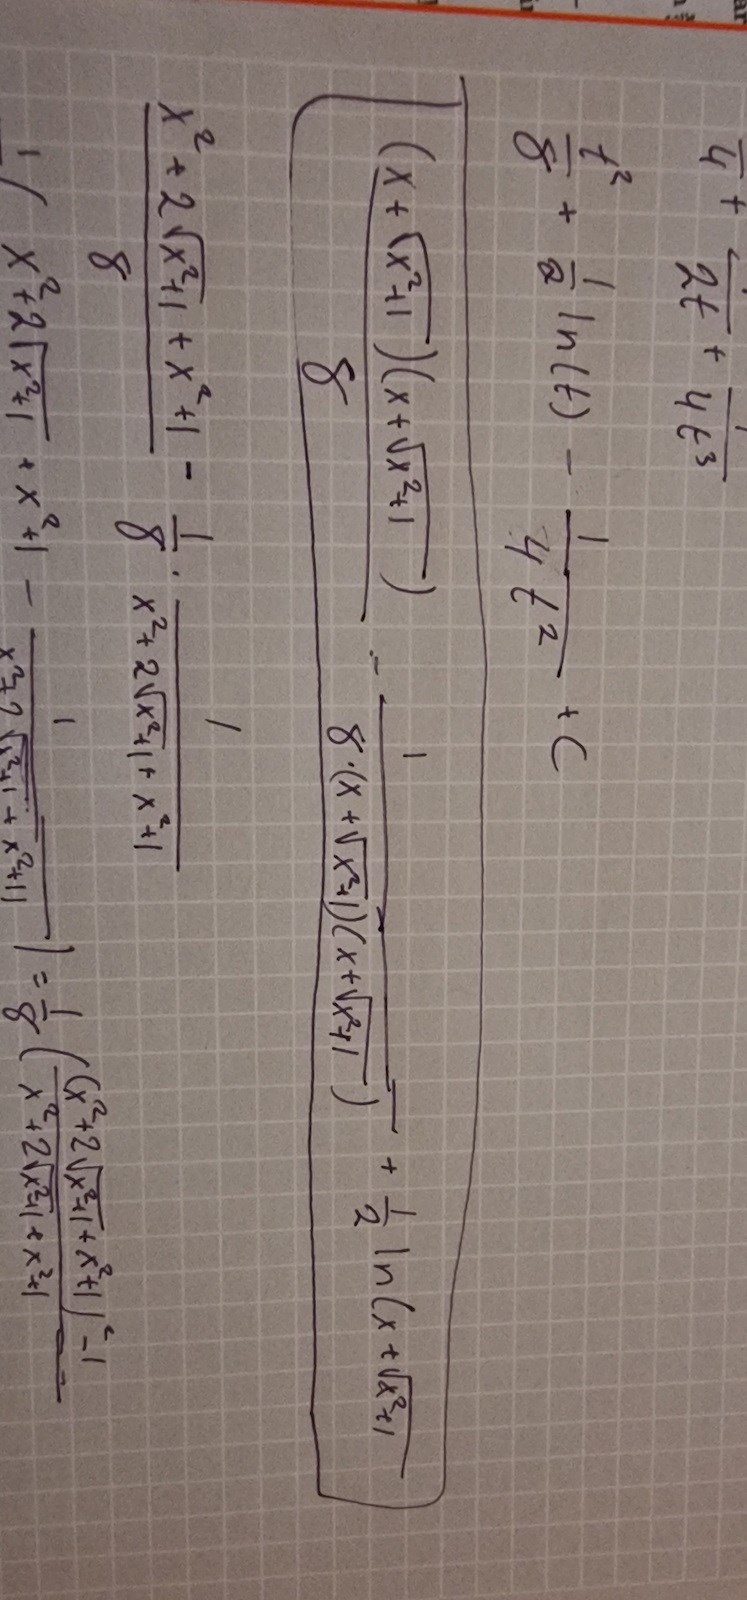 /4 + /2t + 1/4t³
t²/8 + 1/2 ln(t) - 1/4t² + C
(x + √x²+1)(x + √x²+1)/8 - 1/8·(x + √x²+1)(x + √x²+1) + 1/2 ln(x + √x²+1
x² + 2√x²+1 + x²+1/8 - 1/8 · 1/x² + 2√x²+1 + x²+1
1/( x² + 2√x²+1 + x²+1 - 1/x² + 2√x²+1 + x²+1) = 1/8 ((x² + 2√x²+1 + x²+1)² - 1/x² + 2√x²+1 + x²+1